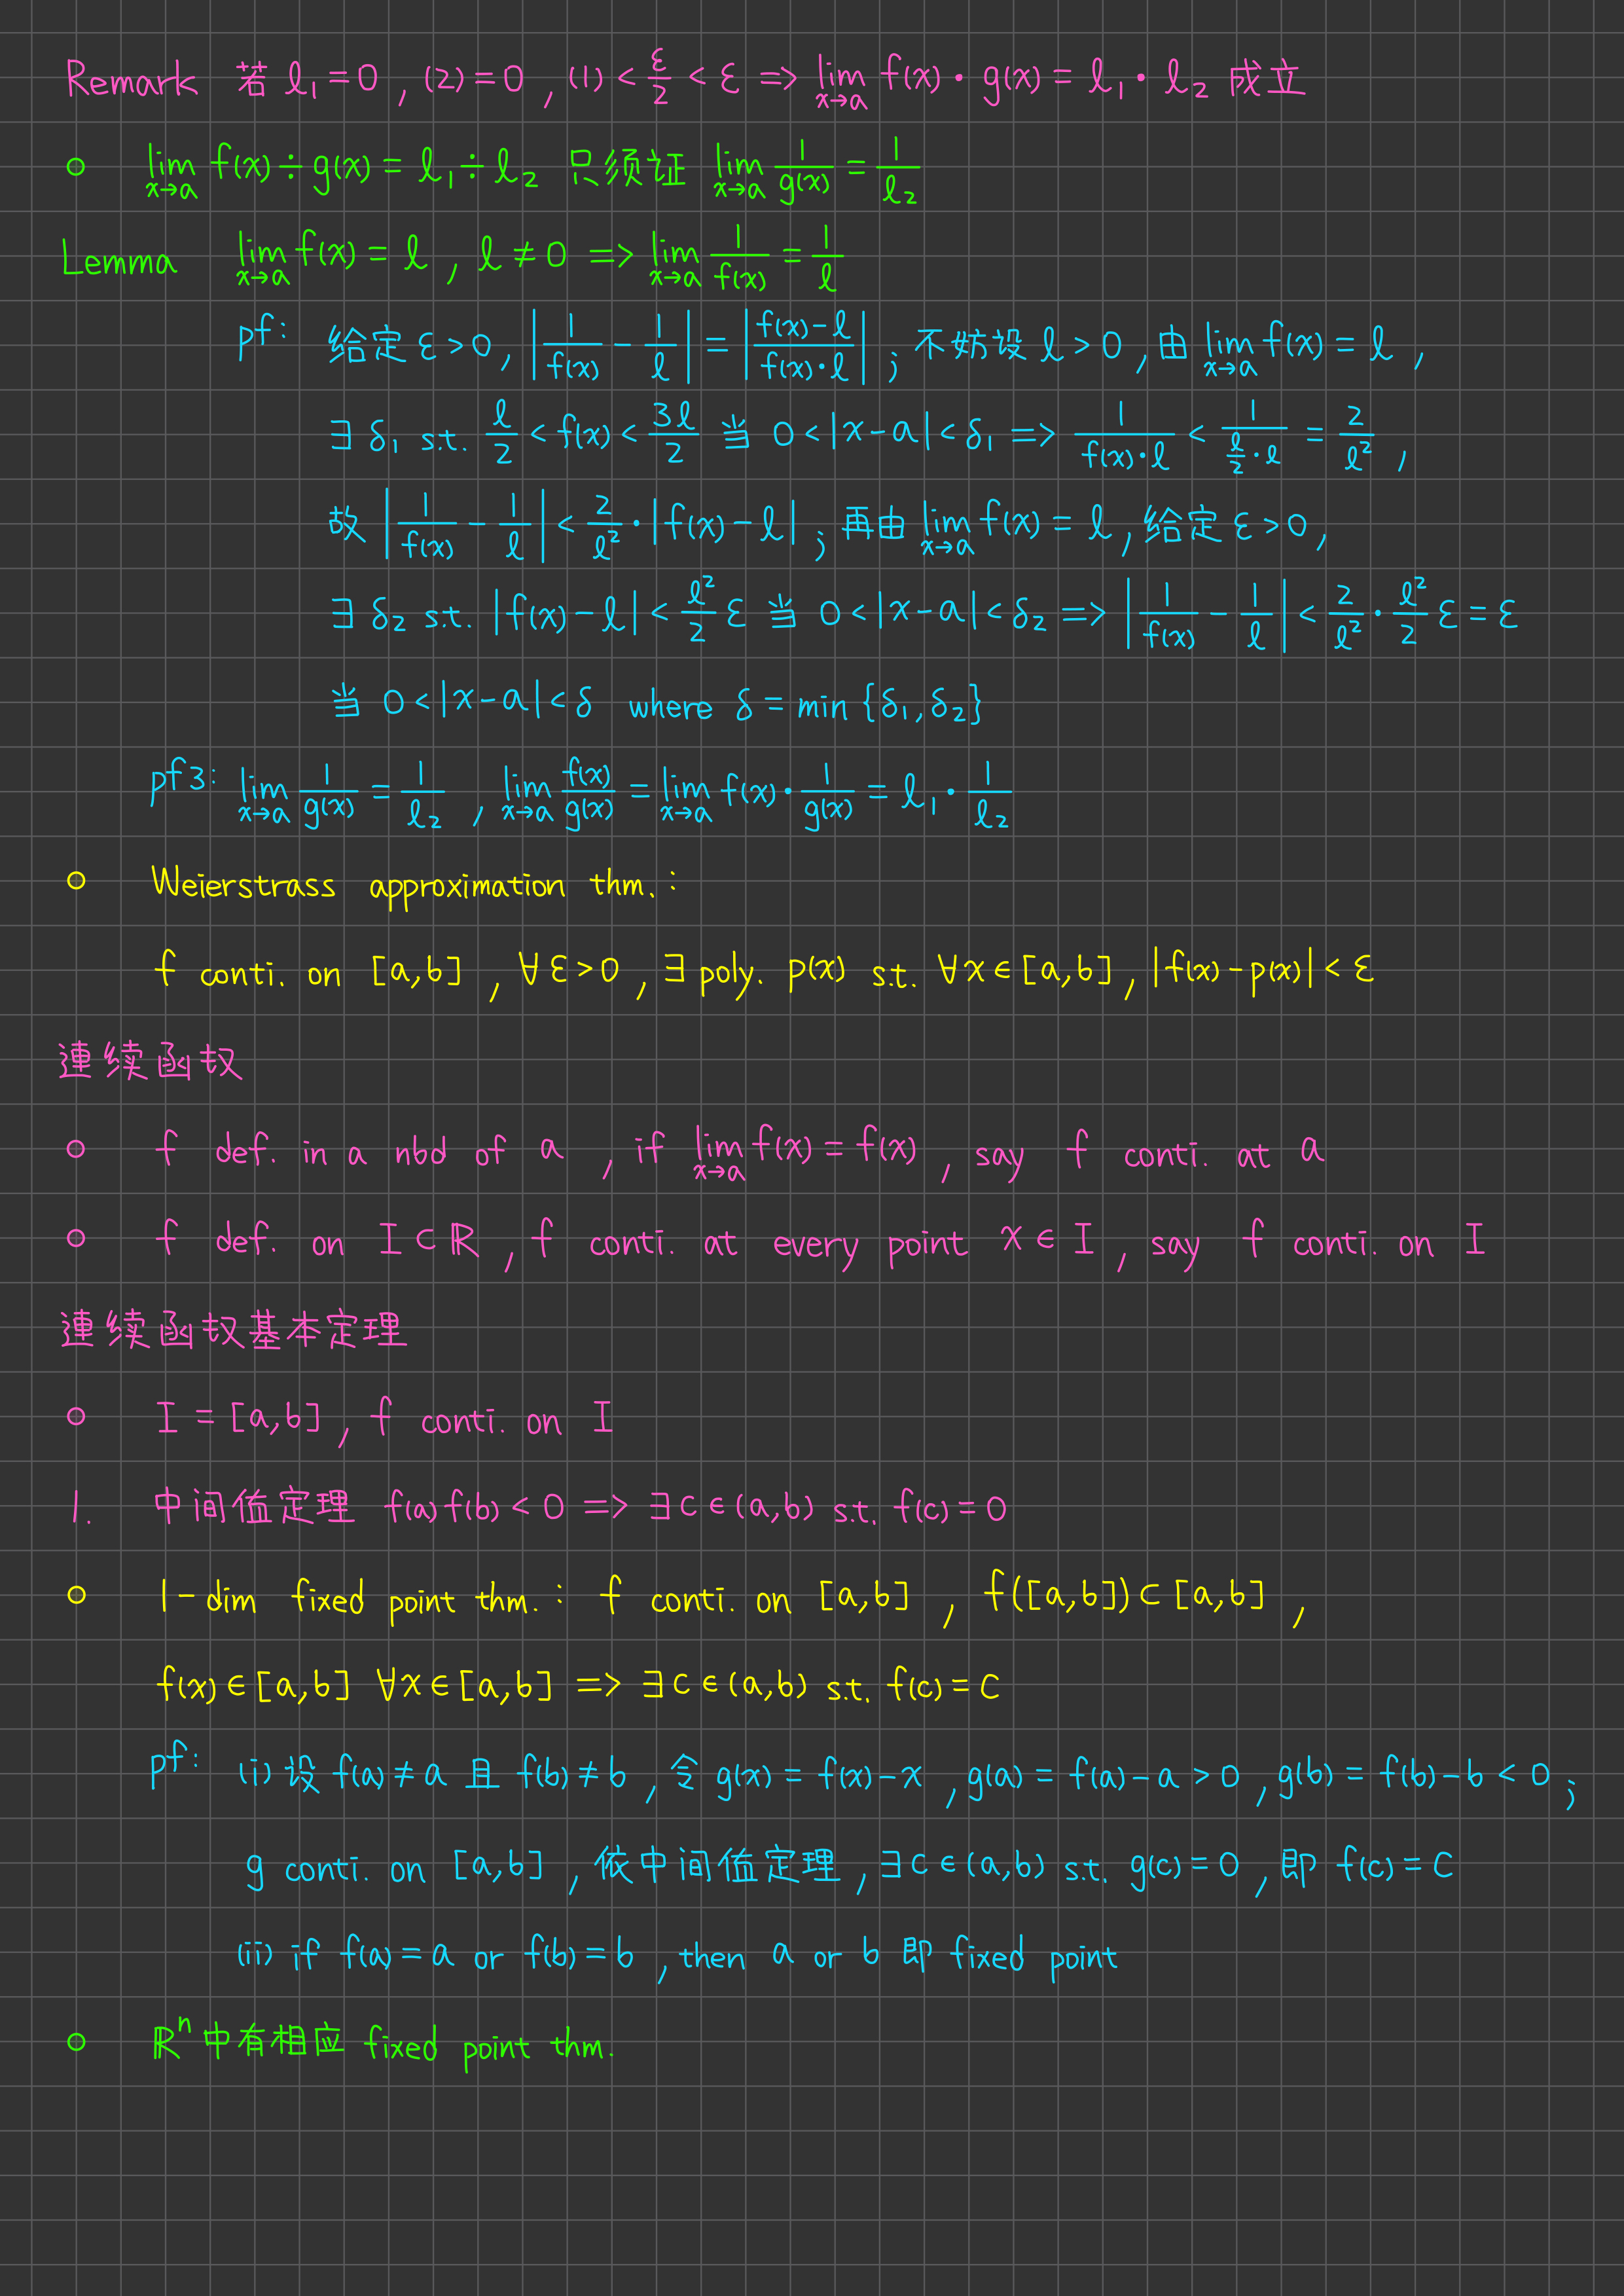 Remark 若 ℓ₁=0 , (2)=0 , (1) < ε/2 < ε => lim_{x→a} f(x)·g(x) = ℓ₁·ℓ₂ 成立
○ lim_{x→a} f(x)÷g(x) = ℓ₁÷ℓ₂ 只须证 lim_{x→a} 1/g(x) = 1/ℓ₂
Lemma lim_{x→a} f(x) = ℓ , ℓ ≠ 0 => lim_{x→a} 1/f(x) = 1/ℓ
pf: 给定 ε>0, |1/f(x) - 1/ℓ| = |(f(x)-ℓ)/(f(x)·ℓ)| ; 不妨设 ℓ>0 , 由 lim_{x→a} f(x) = ℓ ,
∃ δ₁ s.t. ℓ/2 < f(x) < 3ℓ/2 当 0<|x-a|<δ₁ => 1/(f(x)·ℓ) < 1/(ℓ/2·ℓ) = 2/ℓ² ,
故 |1/f(x) - 1/ℓ| < 2/ℓ²·|f(x)-ℓ| ; 再由 lim_{x→a} f(x) = ℓ , 给定 ε>0 ,
∃ δ₂ s.t. |f(x)-ℓ| < ℓ²/2 ε 当 0<|x-a|<δ₂ => |1/f(x) - 1/ℓ| < 2/ℓ²·ℓ²/2 ε = ε
当 0<|x-a|<δ where δ = min {δ₁,δ₂}
pf3: lim_{x→a} 1/g(x) = 1/ℓ₂ , lim_{x→a} f(x)/g(x) = lim_{x→a} f(x)·1/g(x) = ℓ₁·1/ℓ₂
○ Weierstrass approximation thm.:
f conti. on [a,b] , ∀ε>0 , ∃ poly. p(x) s.t. ∀x∈[a,b] , |f(x)-p(x)| < ε
連续函权
○ f def. in a nbd of a , if lim_{x→a} f(x) = f(x) , say f conti. at a
○ f def. on I⊂ℝ , f conti. at every point x∈I , say f conti. on I
連续函权基本定理
○ I = [a,b] , f conti. on I
1. 中间值定理 f(a)f(b) < 0 => ∃c∈(a,b) s.t. f(c)=0
○ 1-dim fixed point thm.: f conti. on [a,b] , f([a,b])⊂[a,b] ,
f(x)∈[a,b] ∀x∈[a,b] => ∃c∈(a,b) s.t. f(c)=c
pf: (i) 设 f(a)≠a 且 f(b)≠b , 令 g(x) = f(x)-x , g(a) = f(a)-a > 0 , g(b) = f(b)-b < 0 ;
g conti. on [a,b] , 依中间值定理 , ∃c∈(a,b) s.t. g(c)=0 , 即 f(c)=c
(ii) if f(a)=a or f(b)=b , then a or b 即 fixed point
○ ℝⁿ中有相应 fixed point thm.